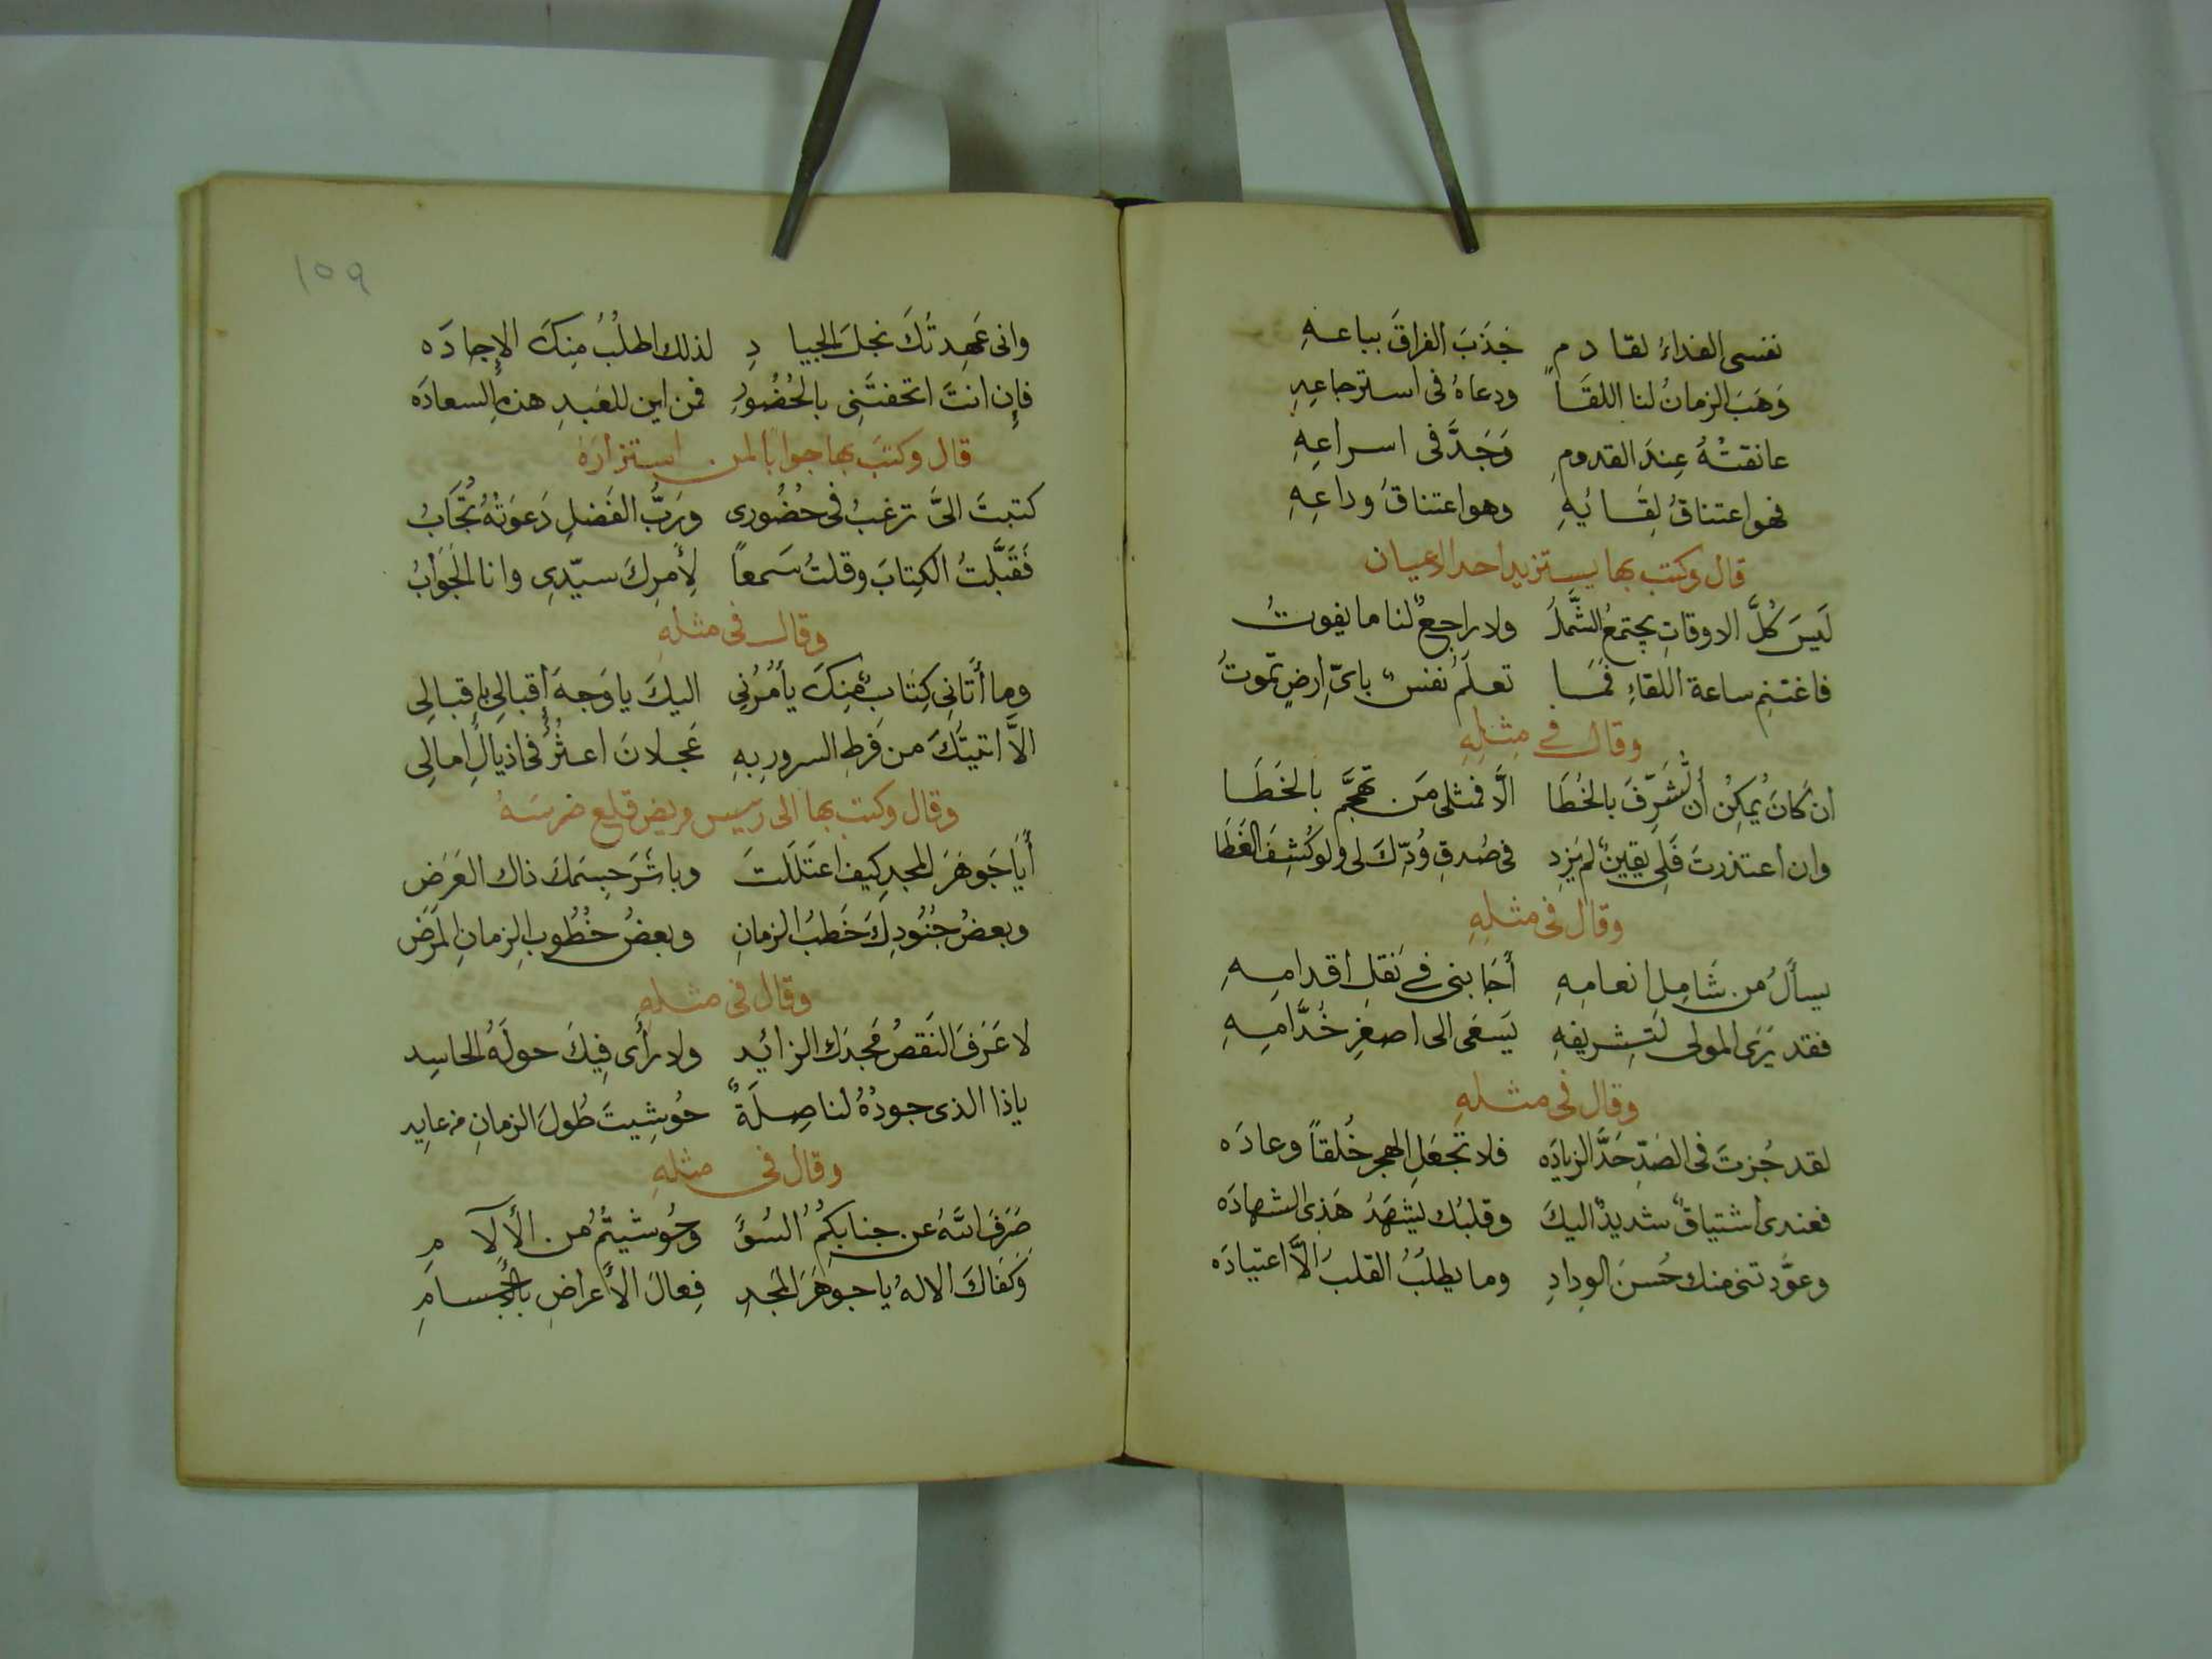 نفسى الفداءُ لقادم جَذَبَ الفراقَ بباعـهِ
وَهَبَ الزمانُ لنا اللقَـا ودعاهُ فى استرجاعِهِ
عانقتْهُ عِندَ القدومِ وَجَدَّ فى اسراعِهِ
فهو اعتناقُ لِقَـائِهِ وهو اعتناقُ وداعِهِ
قال وكتب بها يستزيد احد الاعيان
لَيسَ كُلَّ الاوقاتِ يجتمعُ الشَّملُ ولا راجعٌ لنا ما يفوتُ
فاغتنِم ساعة اللقاءِ فمَـا تعلَمُ نفسٌ باىِّ ارضٍ تموتُ
وقال فى مِثـلِهِ
ان كَانَ يُمكِنُ أن تُشَرِّفَ بالخُطَا الَّا فمثلى مَن تهجَّم بالخَطَـا
وان اعتذرتَ فَلِى يقينٌ لم يَزِد فى صُدقِ وُدِّكَ لى ولو كُشِفَ الغَطَا
وقال فى مثلِهِ
يسألُ من شَامِلِ انعامِهِ أجَابنى فى نَقلِ اقدامِـهِ
فقد يَرَى المولى لتشريفِهِ يَسعَى الى اصغرِ خُدَّامِـهِ
وقال فى مثـلهِ
لقد جُزتَ فى الصَدِّ حَدَّ الزيادَه فلا تجعَلِ الهجر خُلقاً وعادَه
فعندى اشتياقٌ شديدٌ اليكَ وقلبُك يشهَدُ هَذِى الشهادَه
وعوَّدتنى منك حُسنَ الوِدادِ وما يطلبُ القلبُ الَّا اعتيادَه
١٥٩
وانى عَهِدتُكَ نجلَ الجيادِ لذلك اطلُبُ مِنكَ الإجادَه
فإن انتَ اتحفتَنِى بالحُضُورِ فمن اين للعَبدِ هذهِ السعادَه
قال وكتبَ بها جوابا لمن استزارَهُ
كتبتَ الىَّ ترغبُ فى حُضُورى ورَبُّ الفَضلِ دَعوَتهُ تُجَابُ
فَقَبَّلتُ الكِتابَ وقلتُ سَمعاً لِأمرِكَ سيّدِى وانا الجَوَابُ
وقال فى مثلهِ
وما أتَانِى كِتَابٌ مِنكَ يأمُرُنِى اليكَ يا وَجهَ أقبالِى بإقبالِى
الَّا اتيتُكَ من فَرطِ السرورِ بِهِ عَجلانَ اعثُرُ فى اذيالِ امالِى
وقال وكتب بها الى رييس مريض قلع ضرسَهُ
أيَا جَوهَرَ المجدِ كيف اعتَلَلتَ وباشَرَ جِسمَكَ ذاك العَرَضِ
وبعضُ جُنُودِكَ خَطبُ الزمانِ وبعضُ خُطُوبِ الزمانِ المَرَض
وقال فى مثلهِ
لا عَرَفَ النَقصُ مجدَك الزائد ولا رأى فِيكَ حولَهُ الحاسِد
ياذا الذى جودُهُ لنا صِلَةٌ حُوشِيتَ طُولَ الزمانِ من عايِد
وقال فى مثلهِ
صَرَفَ اللهُ عن جنابِكُمُ السُؤَ وحُوشيتُمُ من الألآمِ
وَكفَاكَ الالهُ يا جوهَرَ المَجدِ فِعالَ الأعراضِ بالأجسامِ